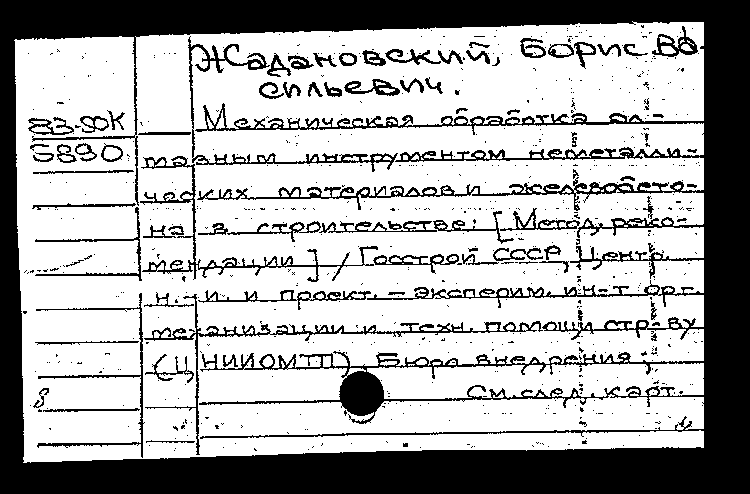 Жадановский, Борис Ва-
сильевич.
83-80К
5890
Механическая обработка ал-
мазным инструментом неметалли-
ческих материалов и железобето-
на в строительстве: [Метод. реко-
мендации] / Госстрой СССР, Центр.
н.-и. и проект.-эксперим. ин-т орг.
механизации и техн. помощи стр-ву
(ЦНИИОМТП), Бюро внедрения;
См. след. карт.